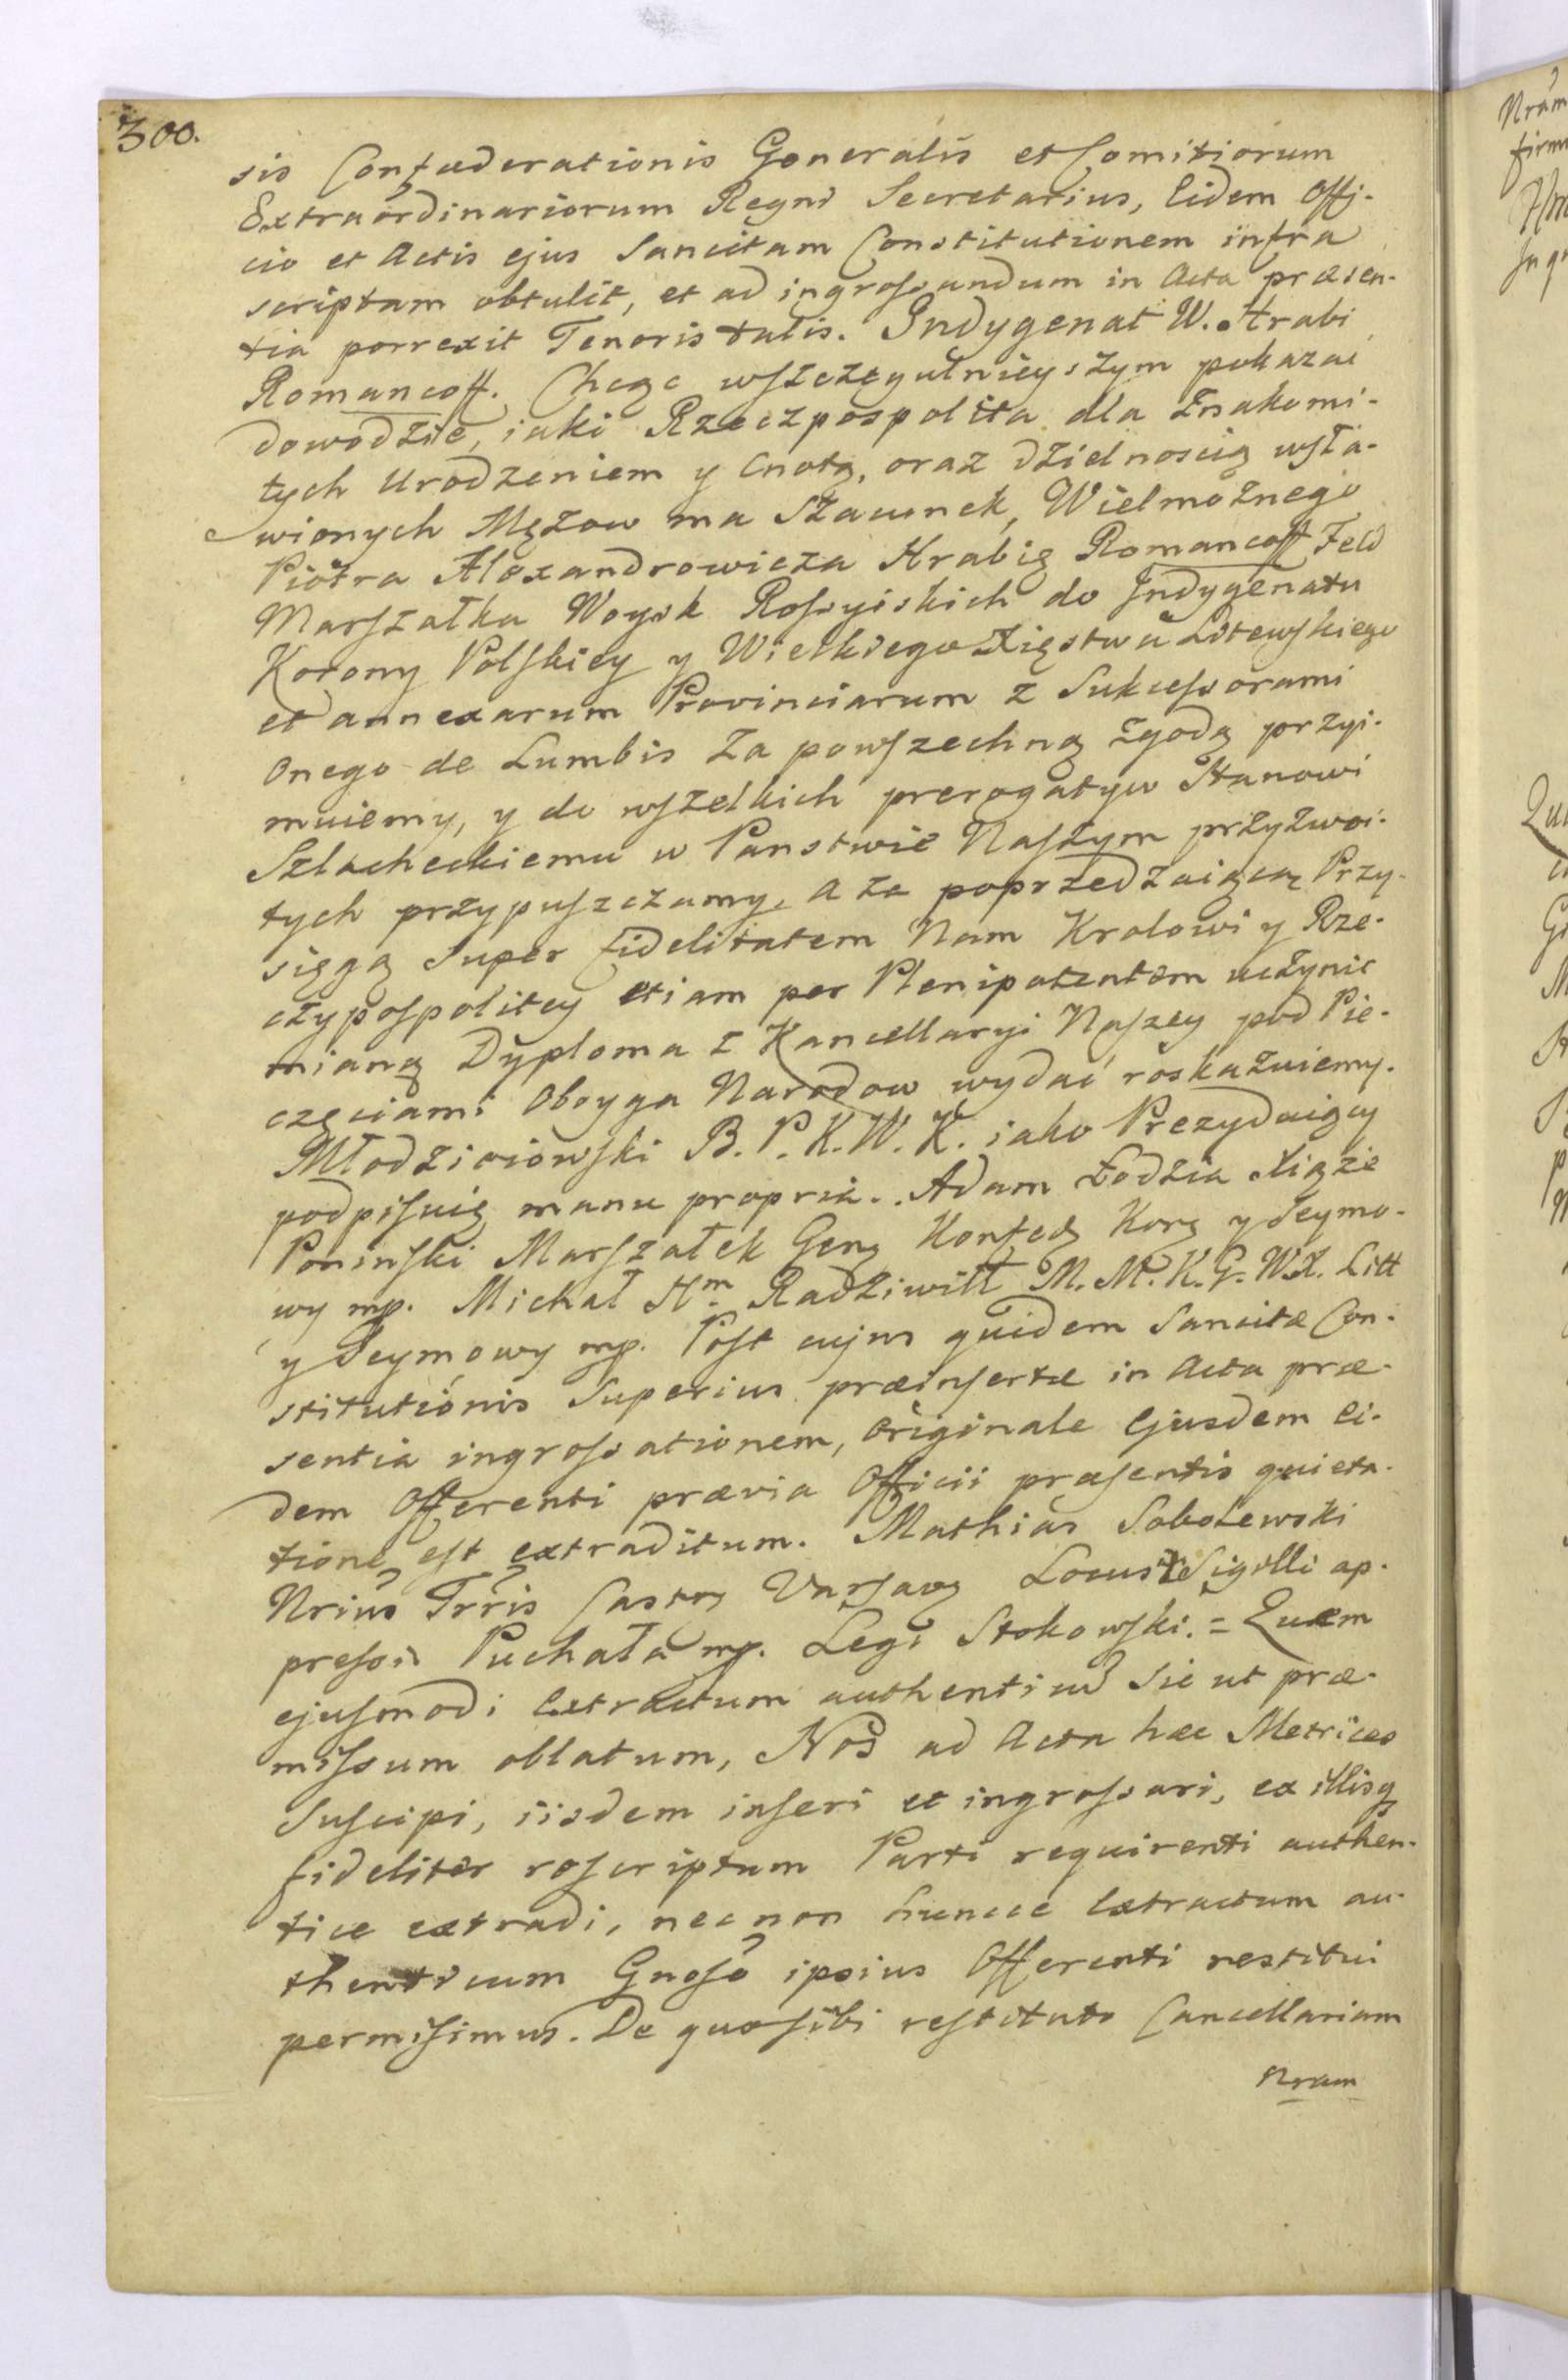 300.
sis Confæderationis Generalis et Comitiorum
Extraordinariorum Regni Secretarius, Eidem Offi-
cio et Actis ejus Sancitam Constitutionem infra
scriptam obtulit, et ad ingrossandum in Acta præsen-
tia porrexit Tenoris talis. Indygenat W. Hrabi
Romancoff. Chcąc wszczegulnieyszym pokazać
dowodzie, iaki Rzeczpospolita dla Znakomi-
tych Urodzeniem y Cnotą, oraz dzielnoscią wsła-
wionych Mężow ma Szacunek, Wielmożnego
Piotra Alexandrowicza Hrabię Romancoff Feld
Marszałka Woysk Rossyiskich do Indygenatu
Korony Polskiey y Wielkiego Xięstwa Litewskiego
et annexarum Provinciarum z Sukcessorami
Onego de Lumbis Za powszechną Zgodą przyi-
muiemy, y do wszelkich prerogatyw Stanowi
Szlacheckiemu w Panstwie Naszym przyzwoi-
tych przypuszczamy, a za poprzedzaiącą Przy-
sięgą Super fidelitatem Nam Krolowi y Rze-
czypospolitey etiam per Plenipotentem uczynić
mianą Dyploma z Kancellaryi Naszey pod Pie-
częciami Oboyga Narodow wydać roskazuiemy.
Młodzieiowski B. P. K. W. K. iako Prezyduiący
podpisuię manu propria. Adam Łodzia Xiąże
Poninski Marszałek Genȝ Konfedȝ Korȝ y Seymo-
wy mp. Michał Hm̃ Radziwiłł M. M. K. G. W. X. Litt
y Seymowy mp. Post cujus quidem Sancitæ Con-
stitutionis Superius præinsertæ in Acta præ-
sentia ingrossationem, Originale Ejusdem Ei-
dem Offerenti prævia Officii præsentis quieta-
tione est extraditum. Mathias Sobolewski
Nrius Trris Castrȝ Varsavȝ Locus Sigilli ap-
pressi Puchała mp. Legi Stokowski. = Quem
ejusmodi Extractum authenticum Sic ut præ-
missum oblatum, Nos ad Acta hæc Metrices
Suscipi, iisdem inseri et ingrossari, ex illisq
fideliter rescriptum Parti requirenti authen-
tice extradi, nec non huncce Extractum au-
thenticum Gnoso ipsius Offerenti restitui
permisimus. De quo sibi restituto Cancellariam
Nram